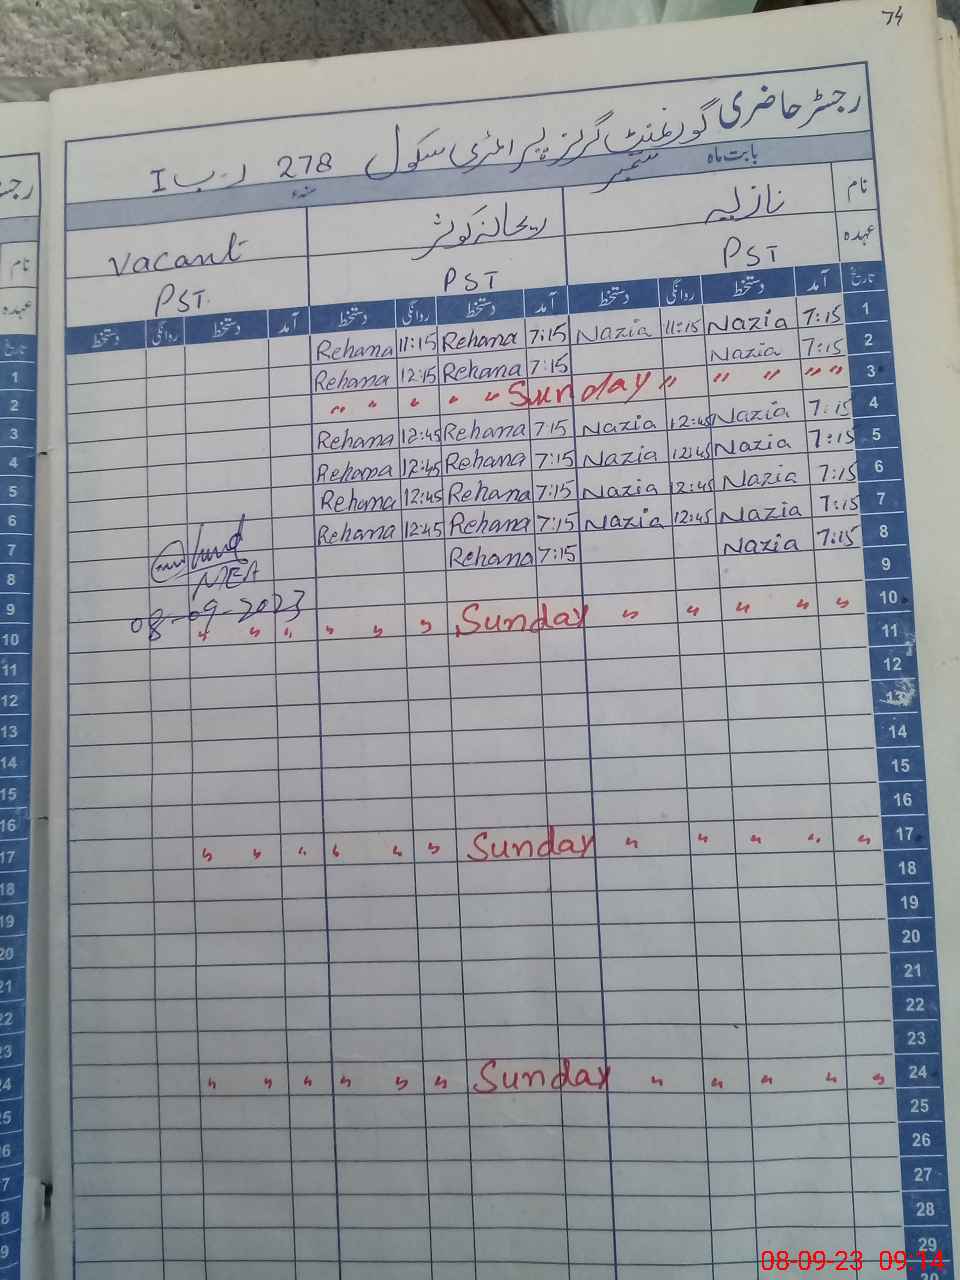 74
رجسٹر حاضری گورنمنٹ گرلز پرائمری سکول 278 ر-ب I
بابت ماہ ستمبر سنہء
نام نازیہ ریحانہ کوثر vacant
عہدہ PST PST PST.
تاریخ آمد دستخط روانگی دستخط آمد دستخط روانگی دستخط آمد دستخط روانگی دستخط
1 7:15 Nazia 11:15 Nazia 7:15 Rehana 11:15 Rehana
2 7:15 Nazia 7:15 Rehana 12:15 Rehana
3 " " " " " Sunday " " " " "
4 7:15 Nazia 12:45 Nazia 7:15 Rehana 12:45 Rehana
5 7:15 Nazia 12:45 Nazia 7:15 Rehana 12:45 Rehana
6 7:15 Nazia 12:45 Nazia 7:15 Rehana 12:45 Rehana
7 7:15 Nazia 12:45 Nazia 7:15 Rehana 12:45 Rehana
8 7:15 Nazia 7:15 Rehana
MEA
9
08-09-2023
10 " " " " " Sunday " " " " " "
11
12
13
14
15
16
17 " " " " " Sunday " " " " " "
18
19
20
21
22
23
24 " " " " " Sunday " " " " " "
25
26
27
28
29
08-09-23 09:14